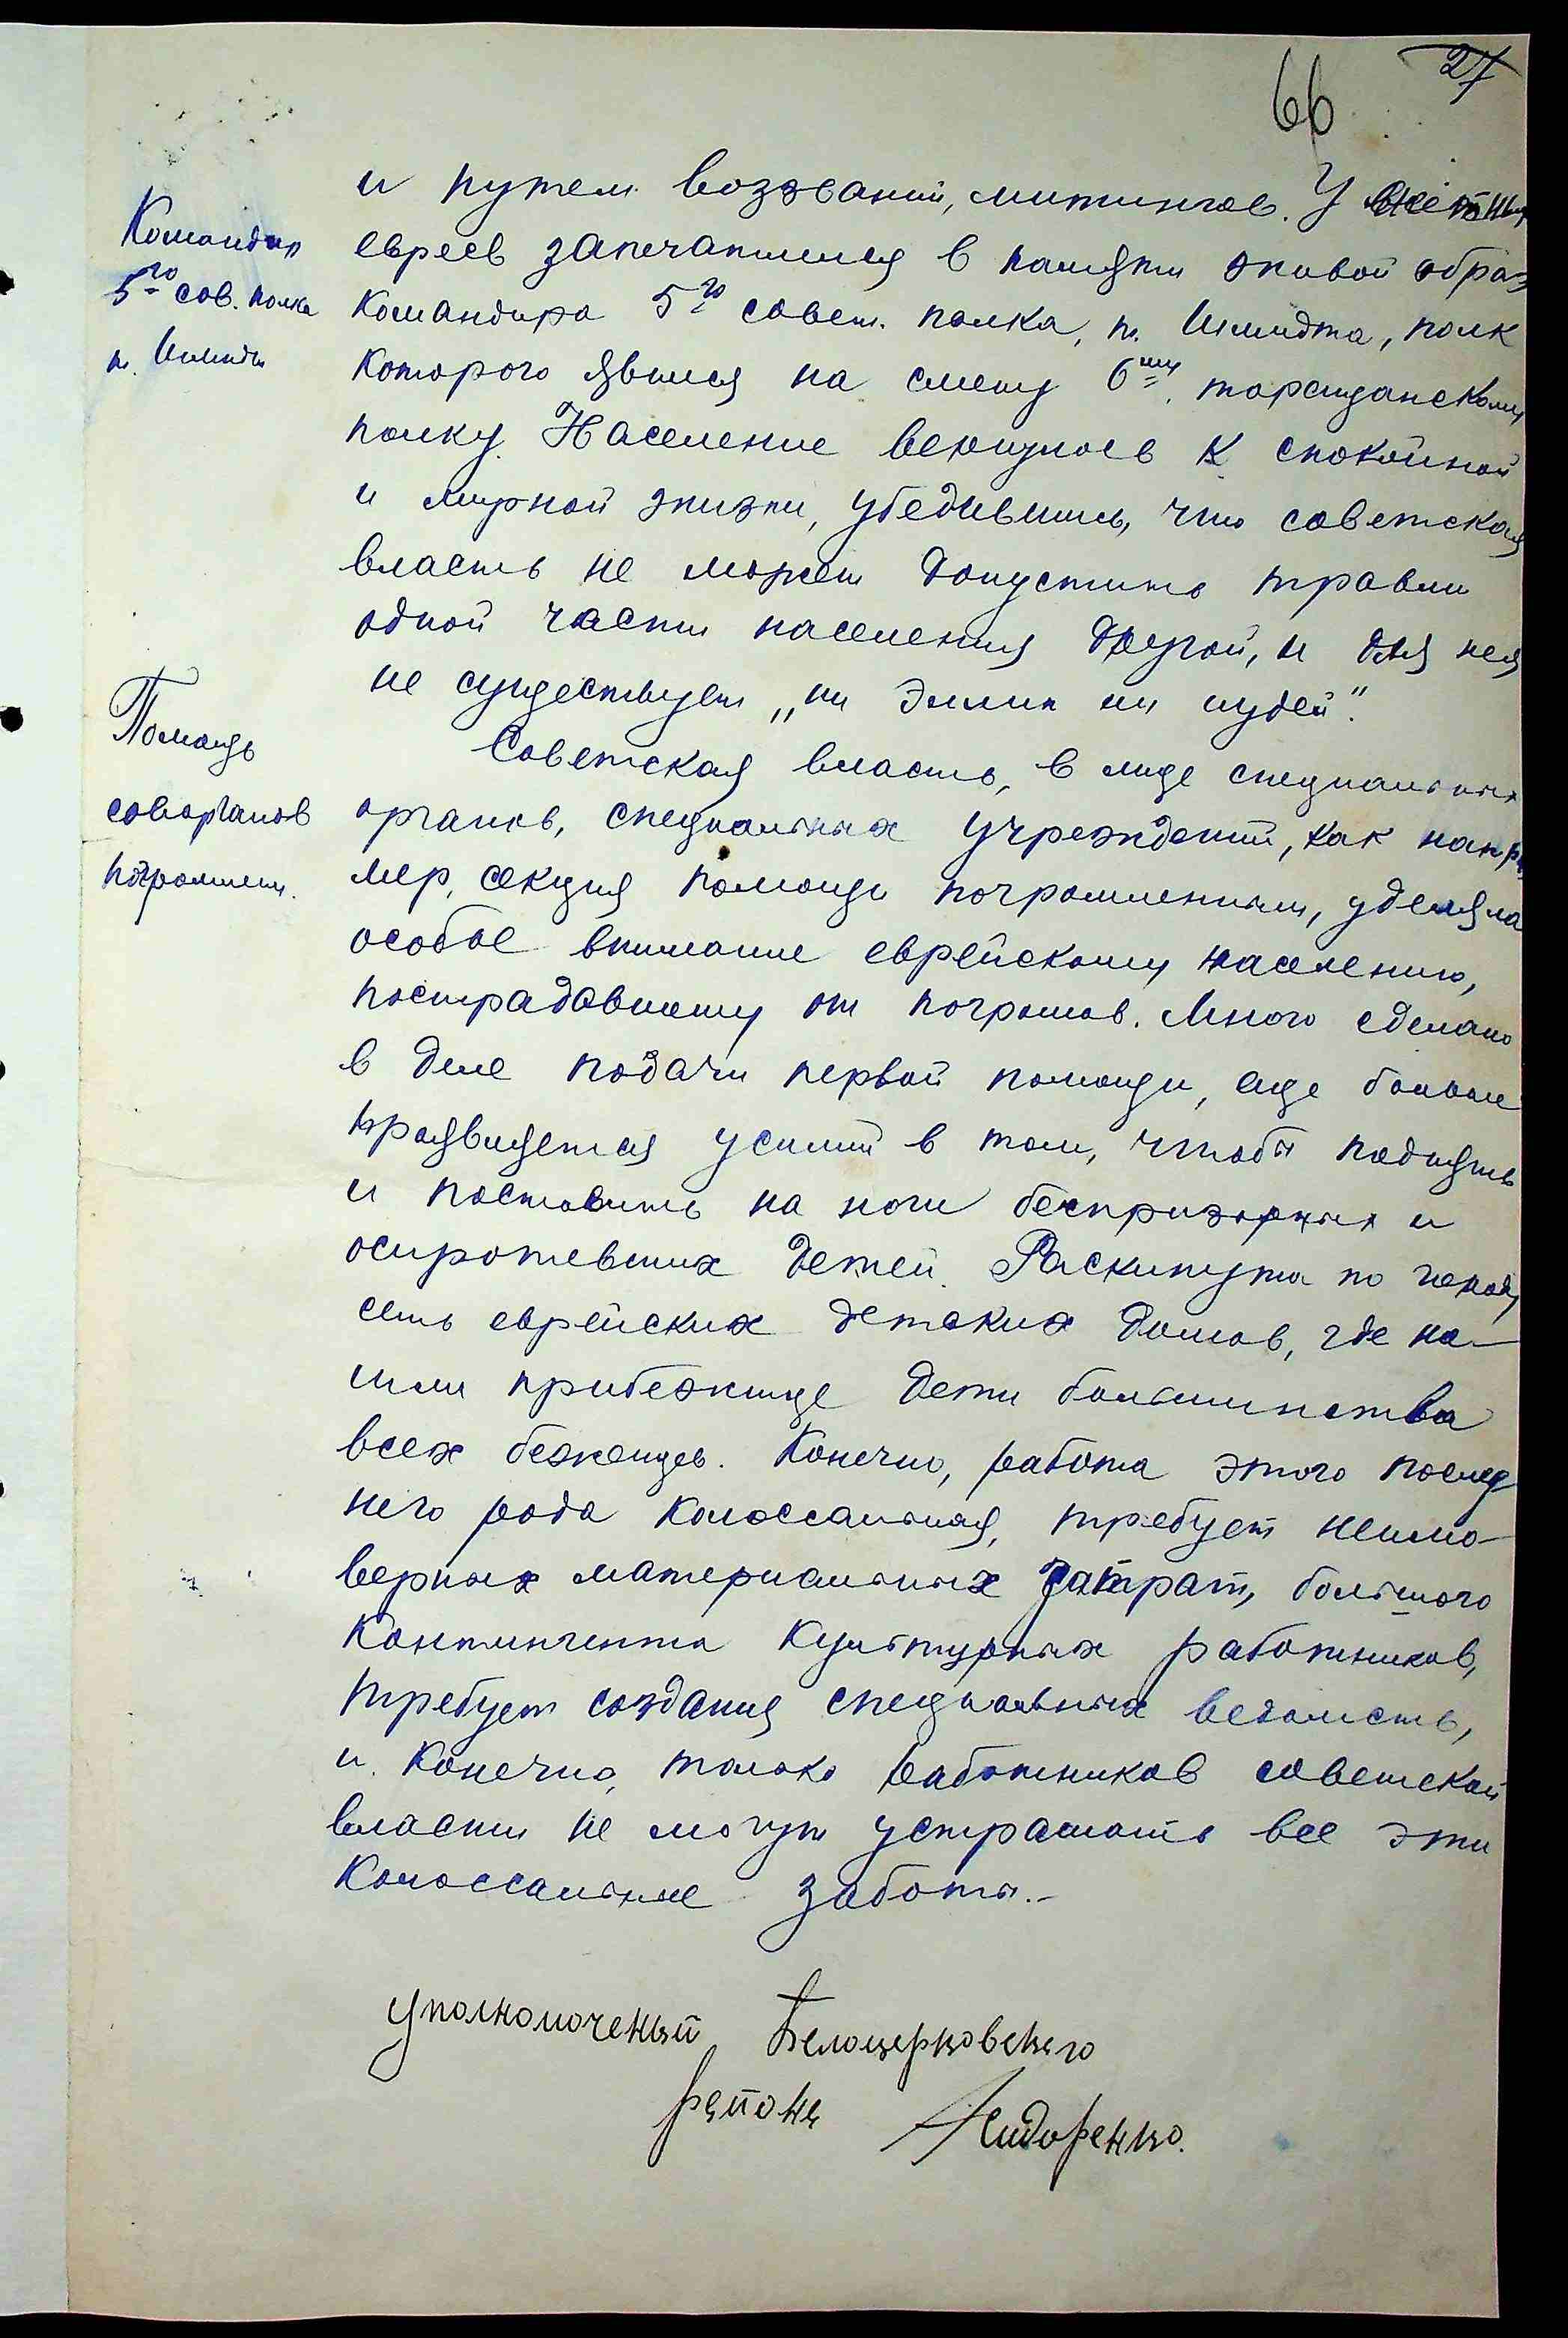 27
66
и путем воззваний, митингов. У местных
Командир
евреев запечатлился в памяти живой образ
5го сов. полка
командира 5го совет. полка, т. Шмидта, полк
т. Шмидт
которого явился на смену 6му таращанскому
полку. Население вернулось к спокойной
и мирной жизни, убедившись, что советская
власть не может допустить травли
одной части населения другой, и для нея
не существует „ни эллин ни иудей".
Помощь
Советская власть, в лице специальных
соворганов
органов, специальных учреждений, как напри
погромлен.
мер, секция помощи погромленным, уделяла
особое внимание еврейскому населению,
пострадавшему от погромов. Много сделано
в деле подачи первой помощи, еще больше
проявляется усилий в том, чтобы поднять
и поставить на ноги беспризорных и
осиротевших детей. Раскинута по городу
сеть еврейских детских домов, где на-
шли прибежище дети большинства
всех беженцев. Конечно, работа этого послед
него рода колоссальная, требует неимо-
верных материальных затрат, большого
контингента культурных работников,
требует создания специальных ведомств,
и конечно, только работников советской
власти не могут устрашать все эти
колоссальные заботы.-
Уполномоченый Белоцерковского
района Сидоренко.